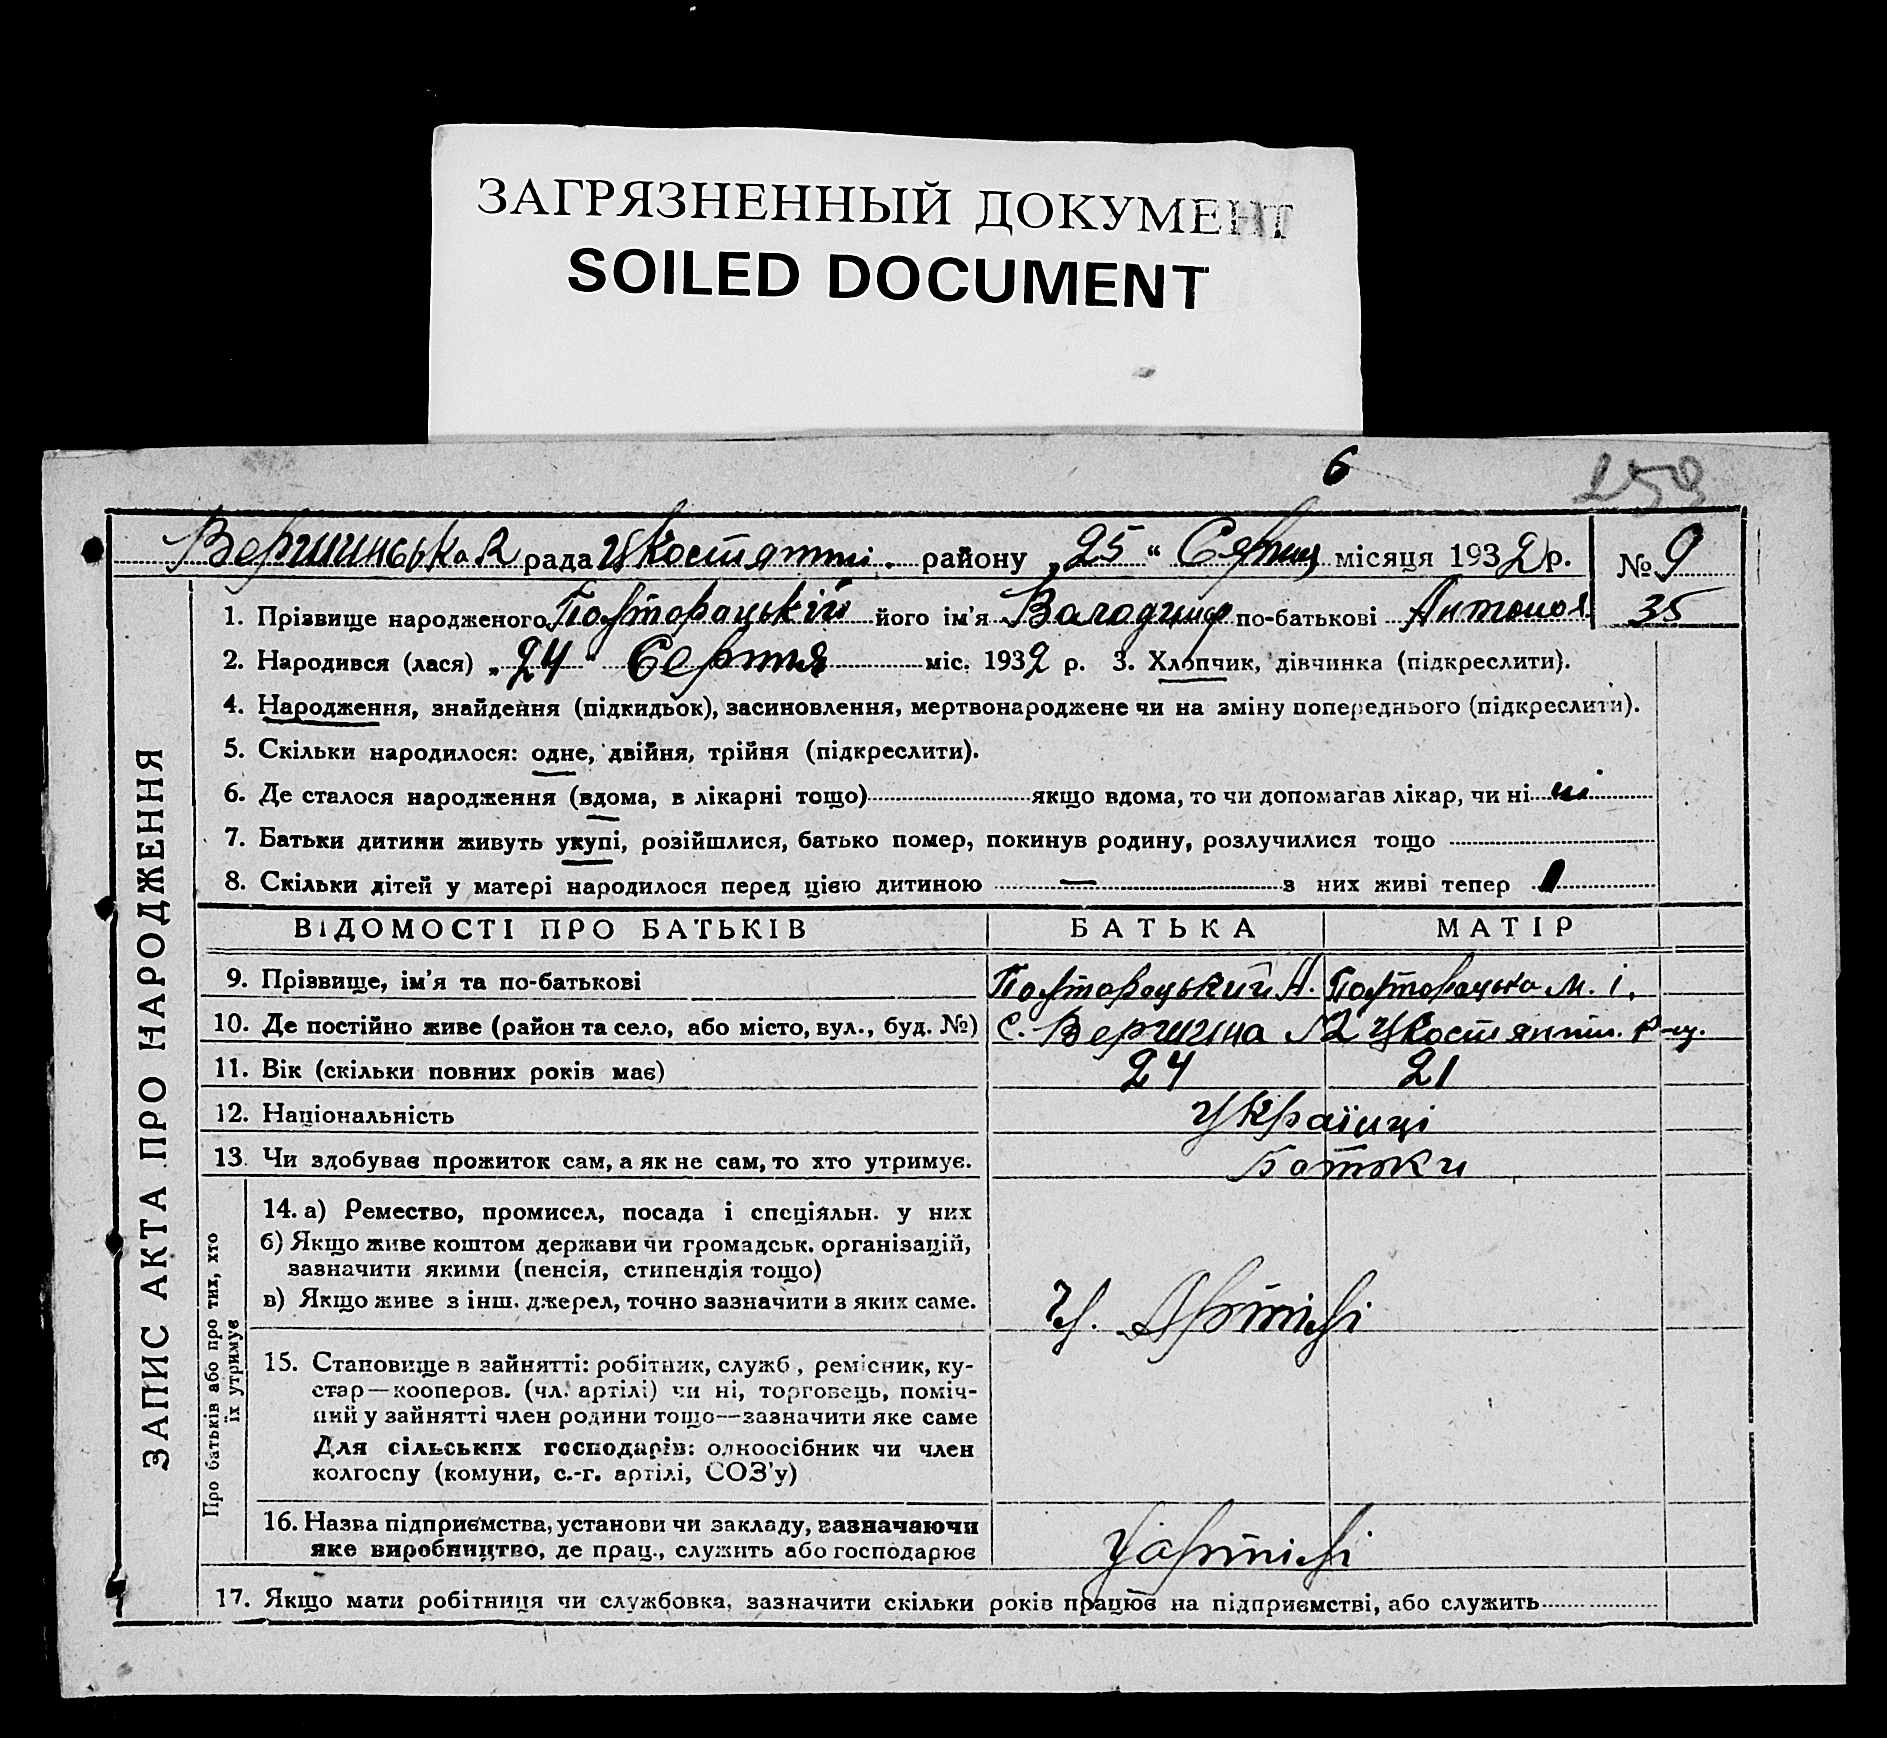 ЗАГРЯЗНЕННЫЙ ДОКУМЕНТ
SOILED DOCUMENT
6
159
Вершинська 2 рада Костянтині. району „25“ Серпня місяця 1932 р. № 9
35
1. Прізвище народженого Полторацький його ім'я Володимир по-батькові Антонов.
2. Народився (лася) „24“ Серпня міс. 1932 р. 3. Хлопчик, дівчинка (підкреслити).
4. Народження, знайдення (підкидьок), засиновлення, мертвонароджене чи на зміну попереднього (підкреслити).
5. Скільки народилося: одне, двійня, трійня (підкреслити).
6. Де сталося народження (вдома, в лікарні тощо) якщо вдома, то чи допомагав лікар, чи ні ні
7. Батьки дитини живуть укупі, розійшлися, батько помер, покинув родину, розлучилися тощо
8. Скільки дітей у матері народилося перед цією дитиною — з них живі тепер 1
ЗАПИС АКТА ПРО НАРОДЖЕННЯ
ВІДОМОСТІ ПРО БАТЬКІВ БАТЬКА МАТІР
9. Прізвище, ім'я та по-батькові Полторацький А. Полторацька М. І.
10. Де постійно живе (район та село, або місто, вул., буд. №) с. Вершина 2 Костянтин. р-ну.
11. Вік (скільки повних років має) 24 21
12. Національність Українці
13. Чи здобував прожиток сам, а як не сам, то хто утримує. Батьки
Про батьків або про тих, хто
їх утримує
14. а) Ремество, промисел, посада і спеціяльн. у них
б) Якщо живе коштом держави чи громадськ. організацій,
зазначити якими (пенсія, стипендія тощо)
в) Якщо живе з інш. джерел, точно зазначити з яких саме.
Чл. Артілі
15. Становище в зайнятті: робітник, служб., ремісник, ку-
стар—кооперов. (чл. артілі) чи ні, торговець, поміч-
ний у зайнятті член родини тощо—зазначити яке саме
Для сільських господарів: одноосібник чи член
колгоспу (комуни, с.-г. артілі, СОЗ'у)
16. Назва підприємства, установи чи закладу, зазначаючи
яке виробництво, де прац., служить або господарює
У артілі
17. Якщо мати робітниця чи службовка, зазначити скільки років працює на підприємстві, або служить